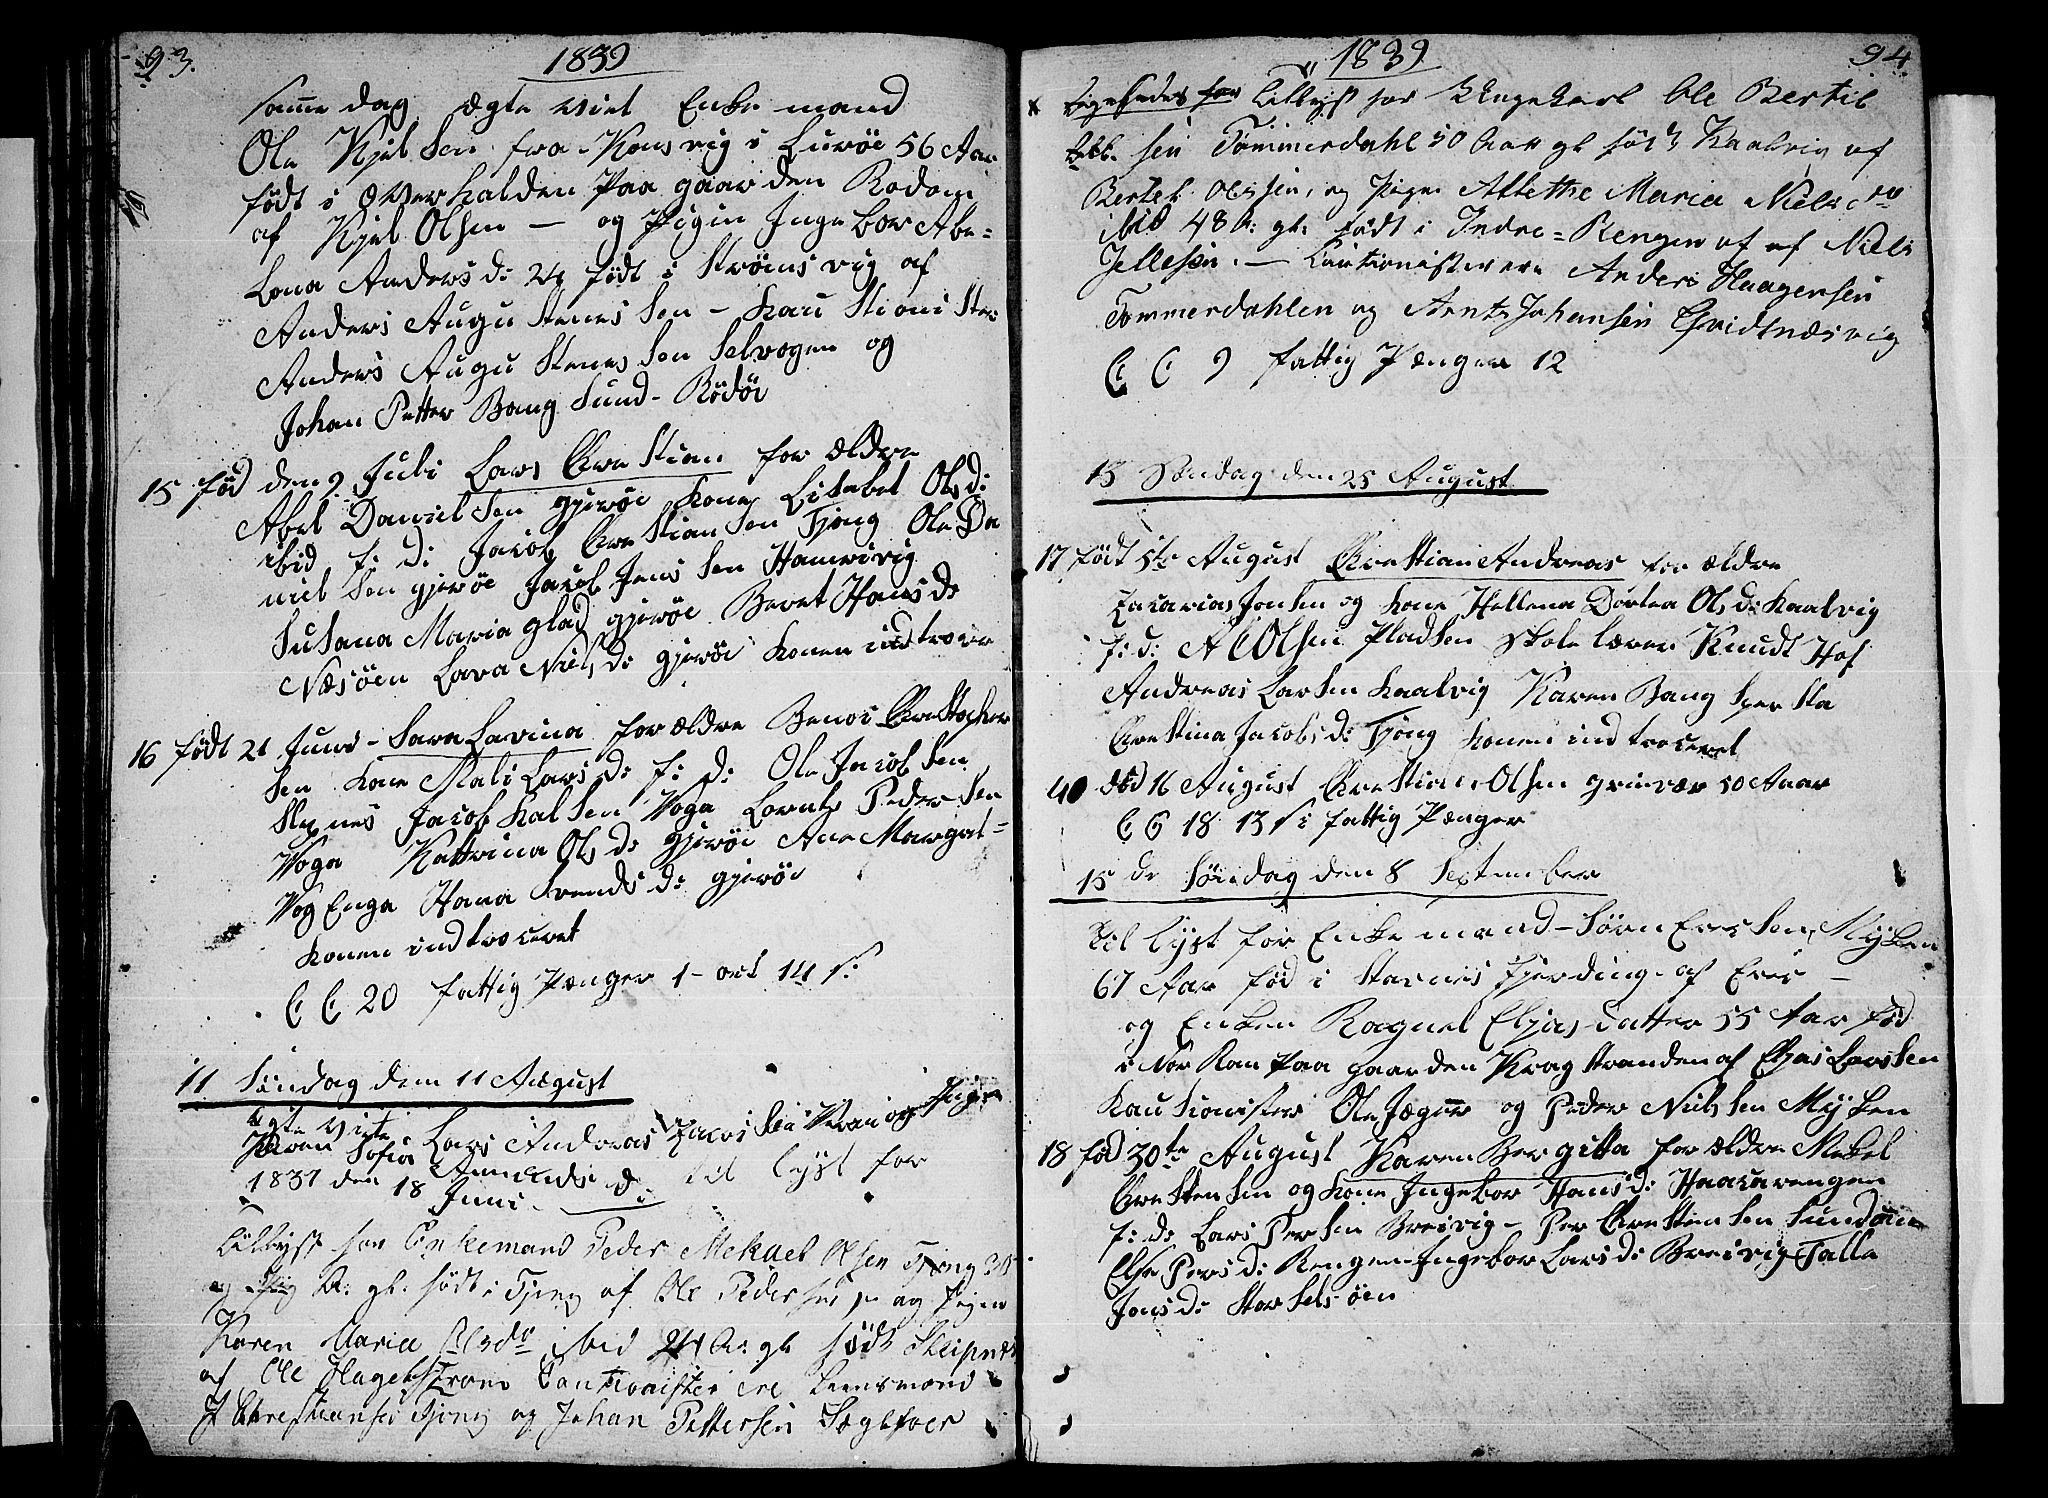 93.
1839
samme dag ægte viet Enke mand
Ole Kjelsen fra Konsvig i Lurøe 56 Aar
født i Overhalden Paa gaarden Rodom
af Kjel Olsen — og Pigin Ingebor Abe=
lona Anders d: 24 født i Strømsvig af
Anders Augustenes sen – Kautionister
Anders Augustenes sen Selvogen og
Johan Petter Bang Sund – Rödöe
15 föd den 9 Juli Lars Crestian for ældre
Abel Danielsen gjerøe Kone Lisabet Ols d:
ibid f: d: Jacob Crestiansen Tjong Ole Da
nielsen gjerøe Jacob Jens sen Hamrvig
Susana Maria glad gjerøe Beret Hans d:
Næsøen Lava Niels d: gjerøe Konen introce
16 født 21 Juni – Sara Lavina forældre Benoi Crestopher
sen Kone Mali Lars d: f: d: Ole Jacobsen
Slepnes Jacob Kalsen Voga Lornts Pedersen
Voga Kattrina Ols d: gjerøe Ane Margret=
Vog Enga Hana Svends d: gjerøe
Konen indtroceret
C C 20 fattig Pænger 1 – ort 14 s:
11 Söndag den 11 August
Egte viete Lars Andreas Zacrisen og Pigen
Karen Sofia d:
1837 den 18 Juni. til lyst for
Tillyst for Enkemand Peder Mekael Olsen Tjong 38
A: gl: födt i Tjong af Ole Pedersen og Pigen
Karen Maria Olsdr ibid 24 A: gl födt Sleipnes
af Ole Hagelstrøm Cautionister ere Leensmand
J Christiansen Tjong og Johan Pettersen Sægefoer
1839
94.
ligeledes for Tillyst for Ungekarl Ole Bertil
sen Tömmerdahl 50 Aar gl föd i Kaalvig af
Bertel Olssen, og Pigen Allethe Maria Nielsdr
ibid 48 A: gl: födt i Indre=Rengen af af Niels
Jellesen. — Cautionister ere Anders Haagensen
Tømmerdahlen og Arnt Johansen Qvidtnæsvig
C C 9 fattig Pænger 12
13 Söndag den 25 August
17 født 5te August Crestian Andreas forældre
Zacarias Jonsen og Kone Hellena Dortea Ols d: Kaalvig
f: d: A C Olsen Pladsen Skolelærer Knudt Hof
Andreas Larsen Kaalvig Karen Bang
Crestina Jacobs d: Tjong Konen indtroceret
40 död 16 August Crestian Olsen grinvær 50 Aar
C C 18 13 s: fattig Pænger
15 de Söndag den 8 September
Til lyst for Enkemand – Sörn Ersen Myken
67 Aar föd i Stamnes Fjerding af Eres —
og Enken Ragnel Eljas datter 55 Aar föd
i Nor Ran paa gaarden Kragstranden af Eljas Larssen
Kautionister Ole Jæger og Peder Nielsen Myken
18 föd 30te August Karen Bergitta forældre Mekel
Crestensen og Kone Ingebor Hans d: Haararengen
f: d: Lars Persen Breivig – Per Crestensen Sundøen
Else Pers d: Rengen Ingebor Lars d: Breivig Talla
Jens d: Storselsøen